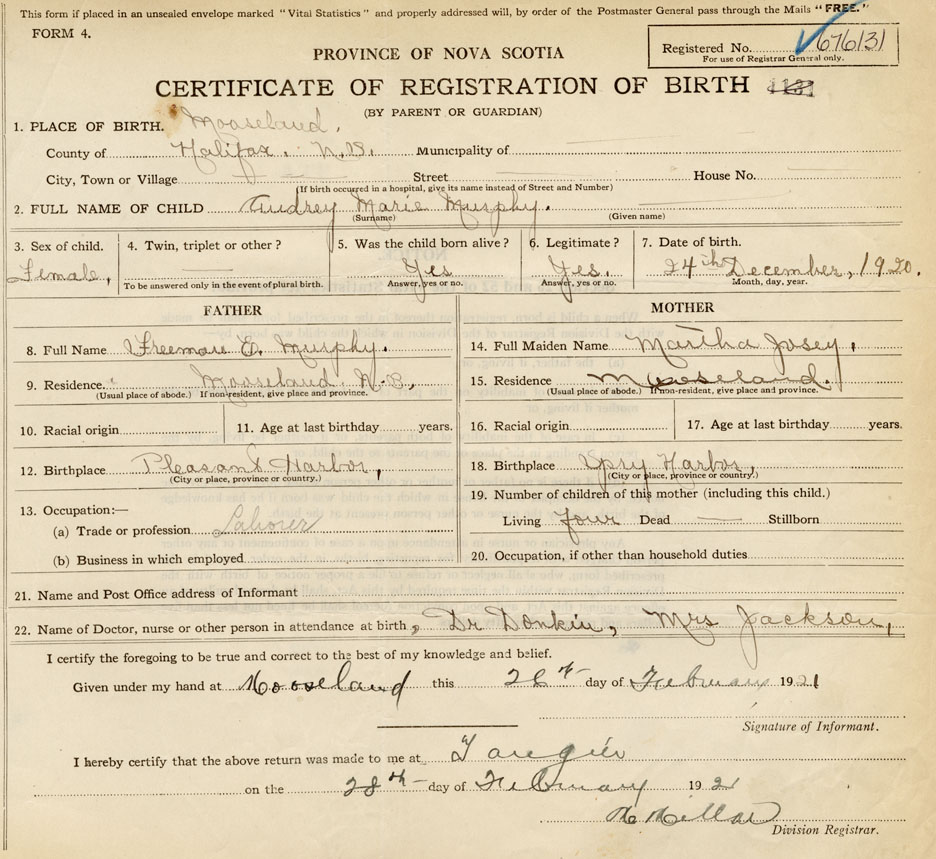 This form if placed in an unsealed envelope marked "Vital Statistics" and properly addressed will, by order of the Postmaster General pass through the Mails "FREE."
FORM 4.
Registered No. 676131
For use of Registrar General only.
PROVINCE OF NOVA SCOTIA
CERTIFICATE OF REGISTRATION OF BIRTH
(BY PARENT OR GUARDIAN)
1. PLACE OF BIRTH. Mooseland.
County of Halifax. N.S. Municipality of
City, Town or Village Street House No.
(If birth occurred in a hospital, give its name instead of Street and Number)
2. FULL NAME OF CHILD Audrey Marie Murphy.
(Surname) (Given name)
3. Sex of child. 4. Twin, triplet or other? 5. Was the child born alive? 6. Legitimate? 7. Date of birth.
Female, Yes Yes. 24th December, 1920.
To be answered only in the event of plural birth. Answer, yes or no. Answer, yes or no. Month, day, year.
FATHER MOTHER
8. Full Name Freeman E. Murphy. 14. Full Maiden Name Martha Josey,
9. Residence. Mooseland N.S., 15. Residence Mooseland.
(Usual place of abode.) If non-resident, give place and province. (Usual place of abode.) If non-resident, give place and province.
10. Racial origin 11. Age at last birthday years. 16. Racial origin 17. Age at last birthday years.
12. Birthplace Pleasant Harbor, 18. Birthplace Spry Harbor,
(City or place, province or country.) (City or place, province or country.)
13. Occupation:— 19. Number of children of this mother (including this child.)
(a) Trade or profession Laborer Living four Dead — Stillborn
(b) Business in which employed 20. Occupation, if other than household duties
21. Name and Post Office address of Informant
22. Name of Doctor, nurse or other person in attendance at birth, Dr Donkin, Mrs Jackson,
I certify the foregoing to be true and correct to the best of my knowledge and belief.
Given under my hand at Mooseland this 28th day of February 1921
Signature of Informant.
I hereby certify that the above return was made to me at Tangier
on the 28th day of February 1921
Division Registrar.